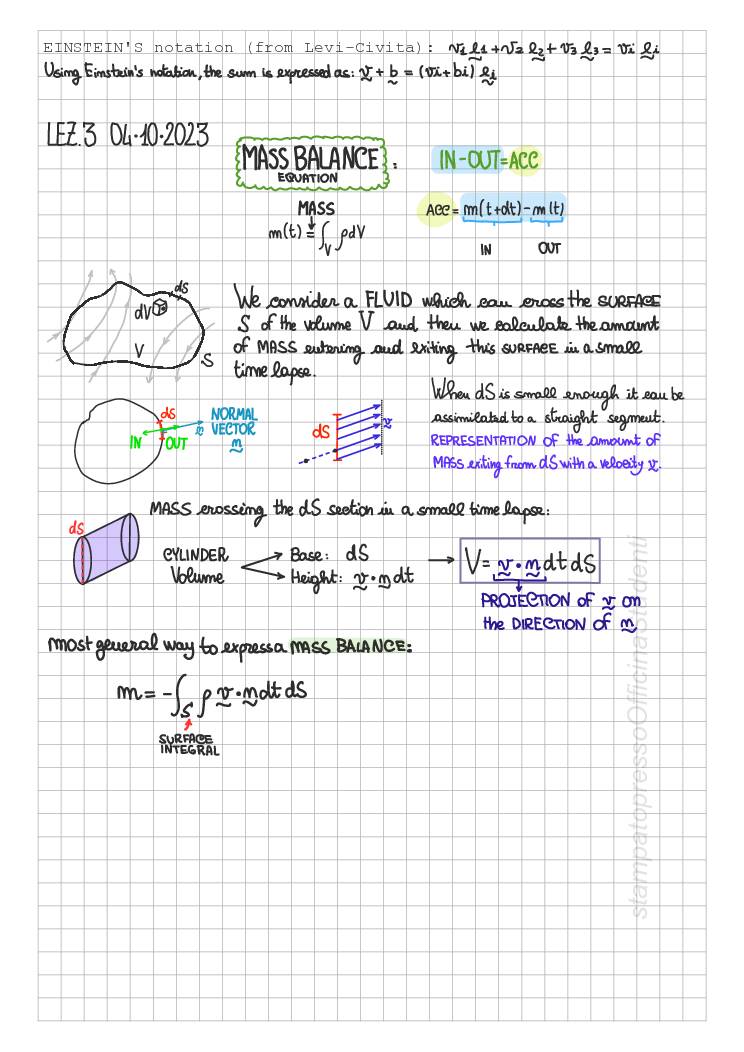 EINSTEIN'S notation (from Levi-Civita): v1 e1 + v2 e2 + v3 e3 = vi ei
Using Einstein's notation, the sum is expressed as: v + b = (vi+bi) ei
LEZ.3 04·10·2023
MASS BALANCE :
EQUATION
IN-OUT=ACC
MASS
m(t) = ∫V ρdV
ACC = m(t+dt) - m(t)
IN OUT
dS
dV
V
S
We consider a FLUID which can cross the SURFACE
S of the volume V and then we calculate the amount
of MASS entering and exiting this SURFACE in a small
time lapse.
dS
IN OUT
n
NORMAL
VECTOR
n
dS
v
When dS is small enough it can be
assimilated to a straight segment.
REPRESENTATION of the amount of
MASS exiting from dS with a velocity v.
MASS crossing the dS section in a small time lapse:
dS
CYLINDER
Volume
Base: dS
Height: v · n dt
V = v · n dt dS
PROJECTION of v on
the DIRECTION of n
most general way to express a MASS BALANCE:
m = -∫S ρ v · n dt dS
SURFACE
INTEGRAL
stampatopressoOfficinaStudenti